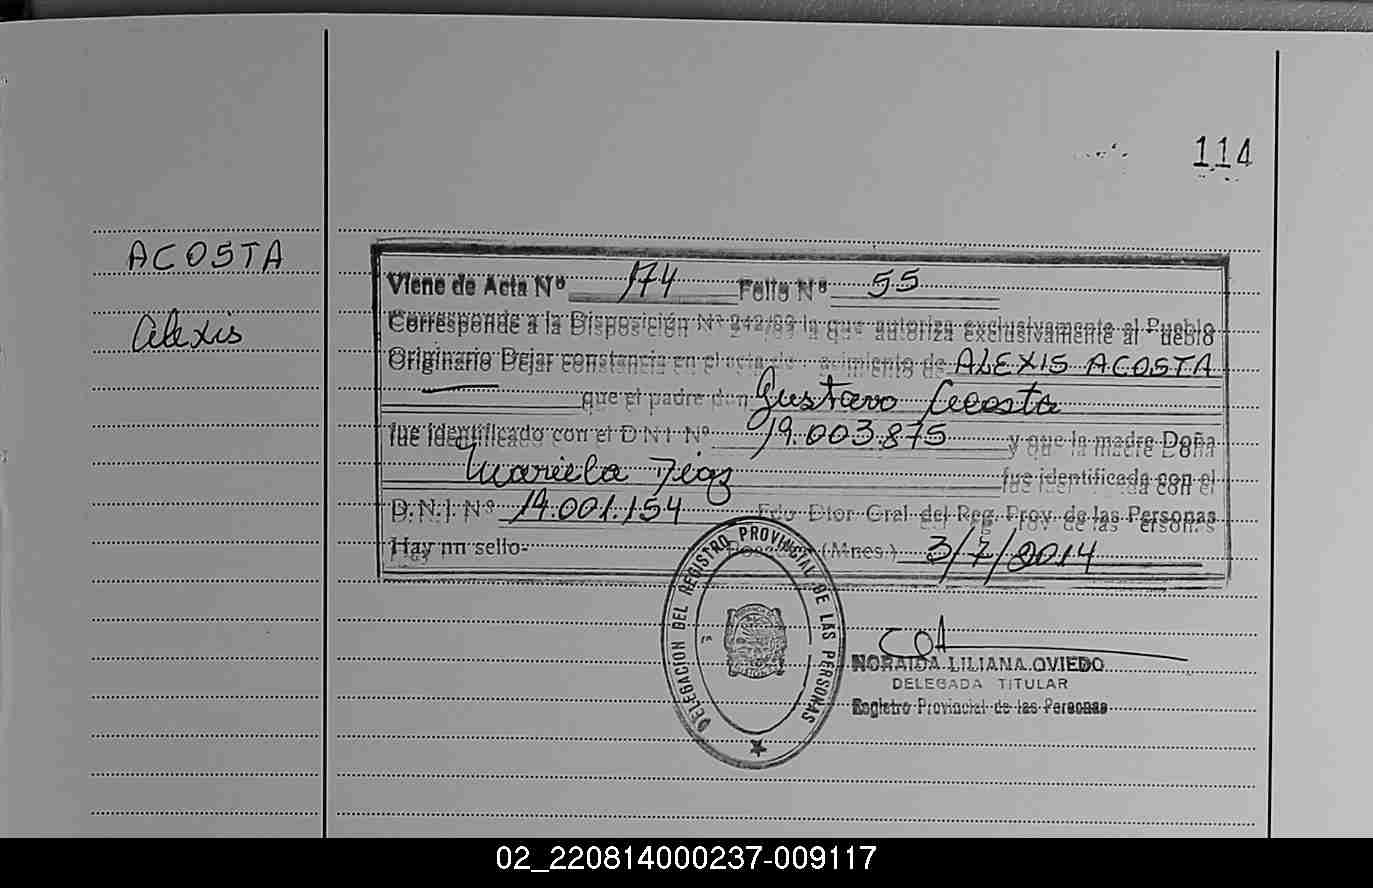 114
ACOSTA
Alexis
Viene de Acta Nº 174 Folio Nº 55
Corresponde a la Disposición Nº 242/89 la que autoriza exclusivamente al Pueblo
Originario Dejar constancia en el acta de ACIMIENTO de ALEXIS ACOSTA
que el padre don Gustavo Acosta
fue identificado con el D N I Nº 19.003.875 y que la madre Doña
Mariela Diaz fue identificada con el
D.N.I. Nº 14.001.154 Fdo Dtor Gral del Reg. Prov. de las Personas
Hay un sello- (Mnes.) 3/7/2014
DELEGACION DEL REGISTRO PROVINCIAL DE LAS PERSONAS
NORAIDA LILIANA OVIEDO
DELEGADA TITULAR
Registro Provincial de las Personas
02_220814000237-009117